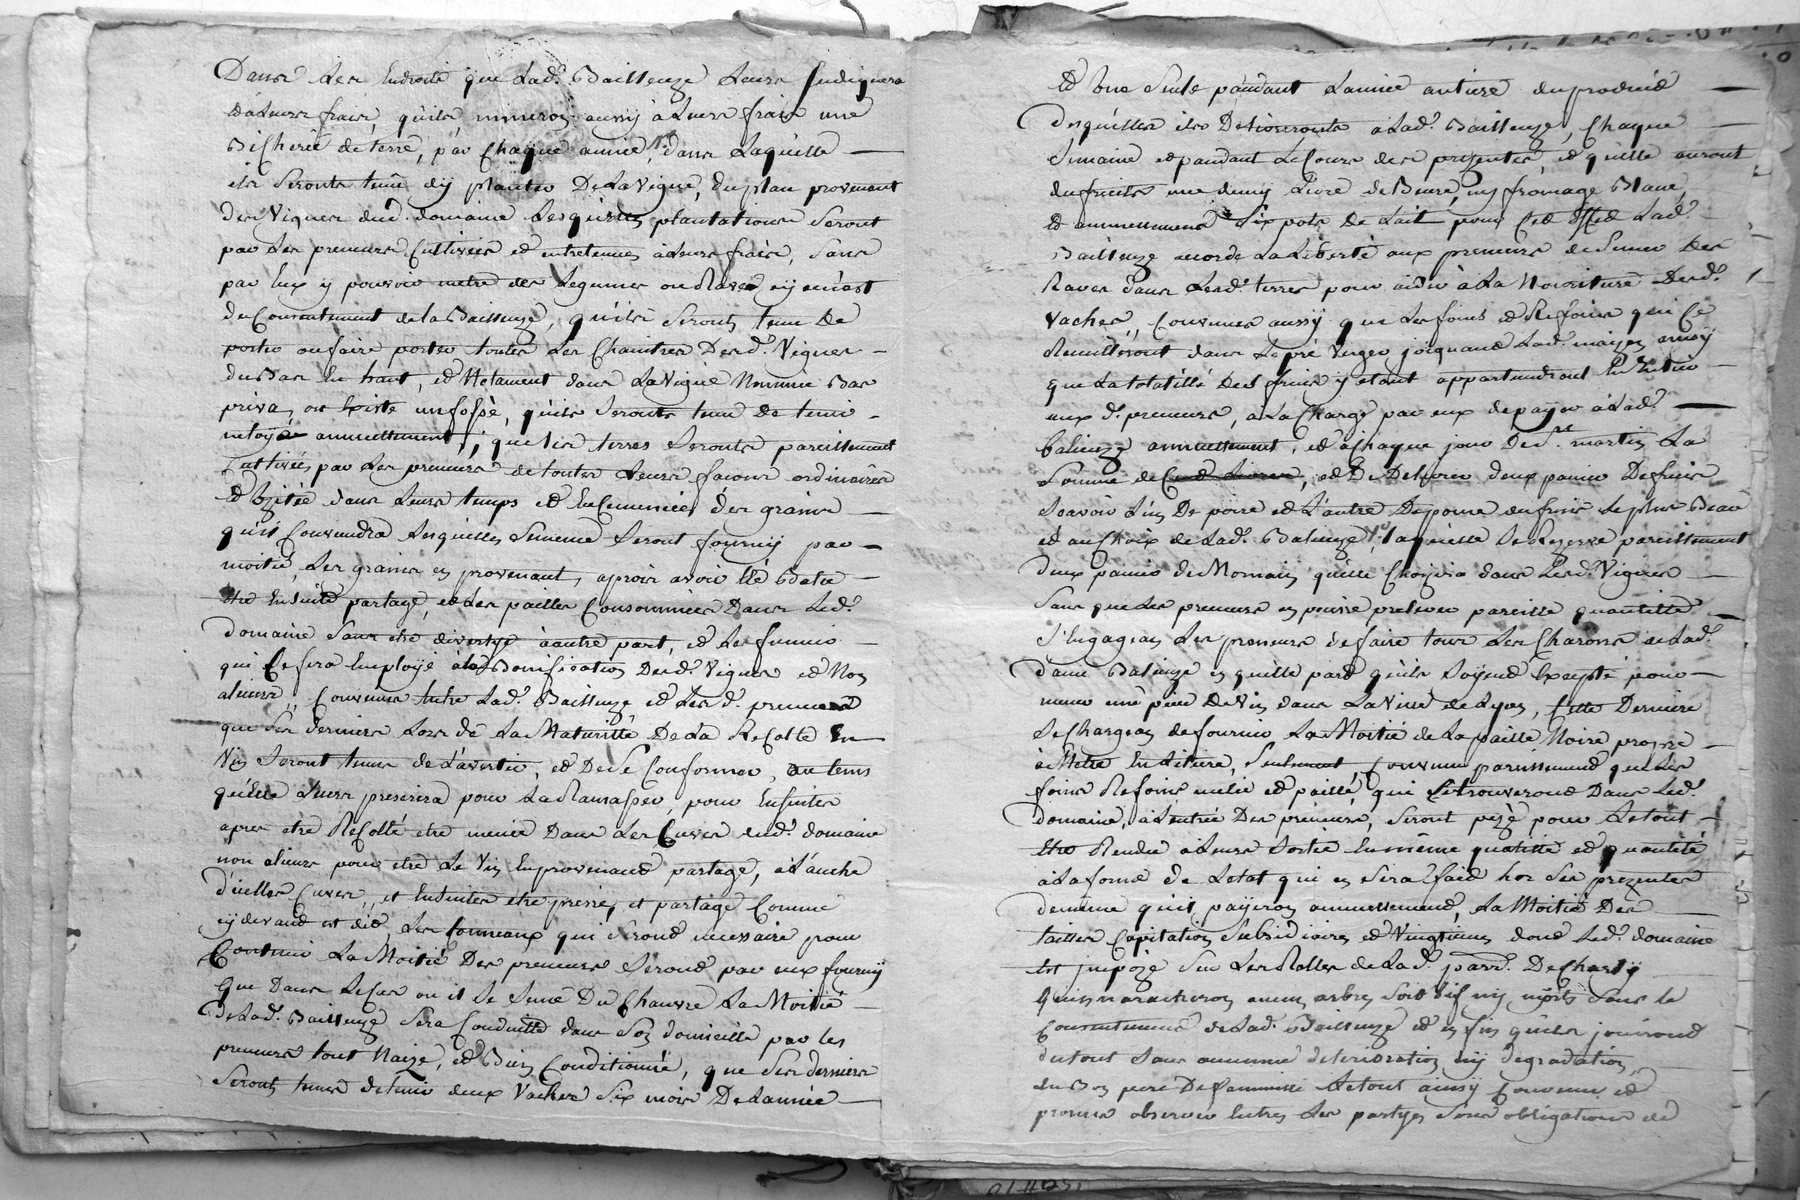 Dans les Endroits que Lad.e Bailleuze Leurs Indiquera
Et à Leurs frais, qu'ils mineron aussy à Leurs frais une
Bicherée de terre, par Chaque année, dans Laquelle
ils Seronts tenu d'y planter De La Vigne, du plan provenant
des Vignes dud. domaine Lesquelles plantations Seront
par Les preneurs Cultivées et entretenues à Leurs frais, Sans
par Eux y pouvoir mettre des Legumes ou Raves sy ce n'est
du Consentement de la Bailleuze, qu'ils Seronts tenu De
porter ou faire porter toutes Les Chaintres Desd. Vignes
du Bas En haut, et Notament dans La Vigne Nommée Bas
priva, ou Existe un fossé, qu'ils Seronts tenu De tenir
netoyé annuellement, que les terres Seronts pareillement
Cultivées par Les preneurs de toutes Leurs façons ordinaires
Et Uzitée dans Leurs temps et Ensemencées des grains
qu'il Conviendra Lesquelles Semence Seront fourny par
moitié, Les grains en provenant, aprois avoir Eté Batu
Etre Ensuite partagé, et Les pailles Consommées Dans Led.
domaine Sans etre divertye à autre part, et Les fumier
qui Ce fera Employé à la Bonification Desd. Vignes et Non
alieurs, Convenus Entre Lad. Bailleuze et Lesd. preneurs
que Ses derniers Lors de La Maturitté De La Recolte En
Vin Seront tenus de L'avertir, et De Se Conformer, au tems
qu'Elle Leurs prescrira pour La Ramasser, pour Ensuites
apres etre Recolté etre menée Dans Les Cuves dud. domaine
non alieurs pour etre Le Vin En provenand partagé, à L'anche
d'icelles Cuves, et Ensuites etre pressé, et partagé Comme
cy devand est dit, Les tonneaux qui Serond necessaire pour
Contenir La Moitié Des preneurs Serond par eux fourny
Que Dans Le Cas ou il Se Seme Du Chanvre La Moitié
De Lad. Bailleuze Sera Conduitte dans Son domicille par les
preneurs tout Naizé, et Bien Conditionné, que Ses derniers
Seronts tenus de tenir deux Vaches Six mois De L'année
Et Une Seule pandant L'année antiere du produid
desquelles ils Delivreronts à Lad. Bailleuze, Chaque
Semaine et pandant Le Cours des prezentes et qu'elle auront
du fruits une demy Livre de Beure, un fromage Blanc,
Et annuellement Six pots De Lait pour Cet Effet Lad.
Bailleuze accorde La Liberté aux preneurs de Semer Des
Raves dans Lesd. terres pour aider à La Nouriture Desd.
Vaches, Convenus aussy que Les foins et Refoins qui Ce
Receuilleront dans Le pré Verger joignand Lad. maizon ainsy
que La totalitté des fruis y etant appartiendront En Entier
aux d. preneurs, à La Charge par eux de payer à Lad.
Balieuze annuellement, et à Chaque jour de St. martin La
Somme de , et De Delivrer deux panier De fruis
Scavoir L'un De poire et L'autre De pome du fruis Le plus Beau
et au Choix de Lad. Balieuze, Laquelle Se Rezerve pareillement
deux panier de Mornain qu'elle Choizira dans Lesd. Vignes
Sans que Les preneurs en puisse prelever pareille quantitté
S'Engagean Les preneurs de faire tous Les Charois de Lad.
dame Balieuze en quelle pard qu'ils Soyent Excepté pour
mener une piece De Vin dans La Ville de Lyon, Cette Derniere
Se Chargean de fournir La Moitié de La paille Noire propre
à Mettre En Litiere, Seulement Convenu pareillement que Les
foins Refoins mêlé et paille, qui Se trouverond Dans Led.
domaine, à L'entrée Des preneurs, Seront pezé pour Le tout
Etre Rendu à Leurs Sortie En même qualité et quantité
à La forme de L'etat qui en Sera faid hors Des prezentes
de même qu'il payeron annuellemend, La Moitié Des
tailles Capitation Subsidiaires et Vingtiemes dont Led. domaine
Est Impozé Sur Les Rolles de Lad. parr. De Charly
Qu'ils n'aracheron aucun arbres Soit Vif ny morts Sans le
Consentement de Lad. Bailleuze et en fin qu'ils jouirond
du tout Sans aucunne deterioration ny degradation,
En Bon pere De Familles Le tout ainsy Convenu et
promis observer Entres Les partyes Sous obligations de